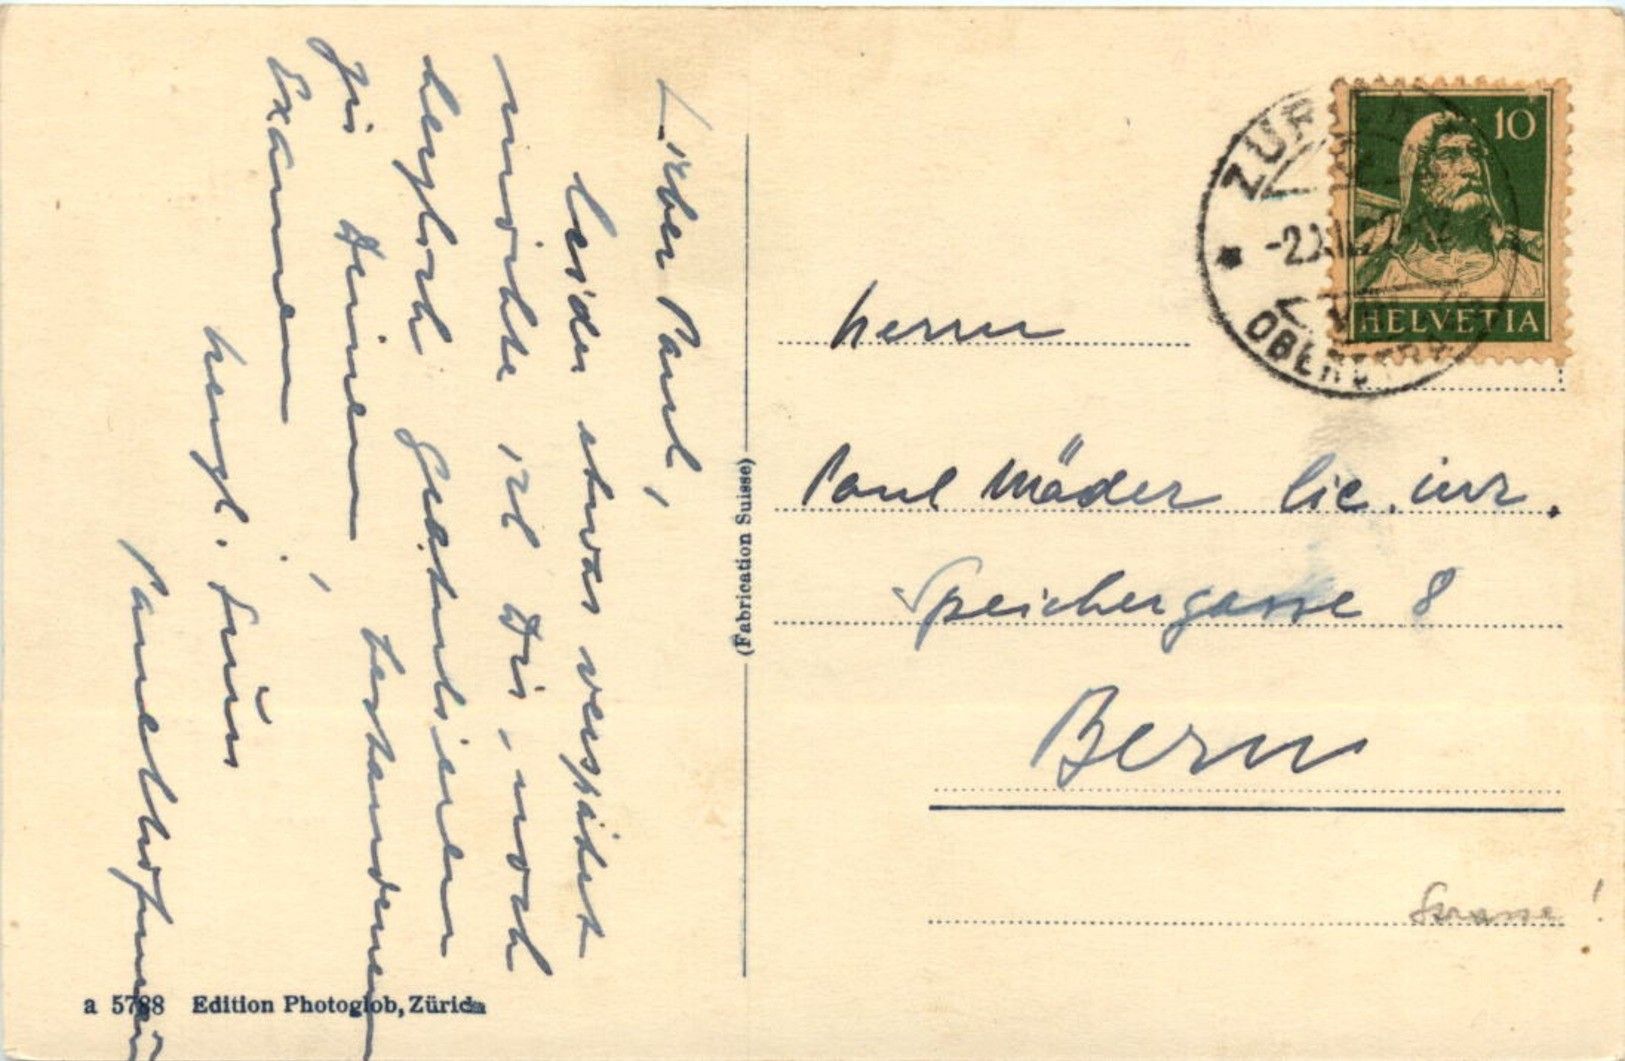 Lieber Paul,
leider etwas verspätet
möchte ich Dir, noch
herzlich gratulieren
zu Deinem bestandenen
Examen!
herzl. Gruss
a 5788 Edition Photoglob, Zürich
(Fabrication Suisse)
ZÜRICH
OBERSTRASS
10
HELVETIA
Herrn
Paul Mäder lic. iur.
Speichergasse 8
Bern
Strasse!